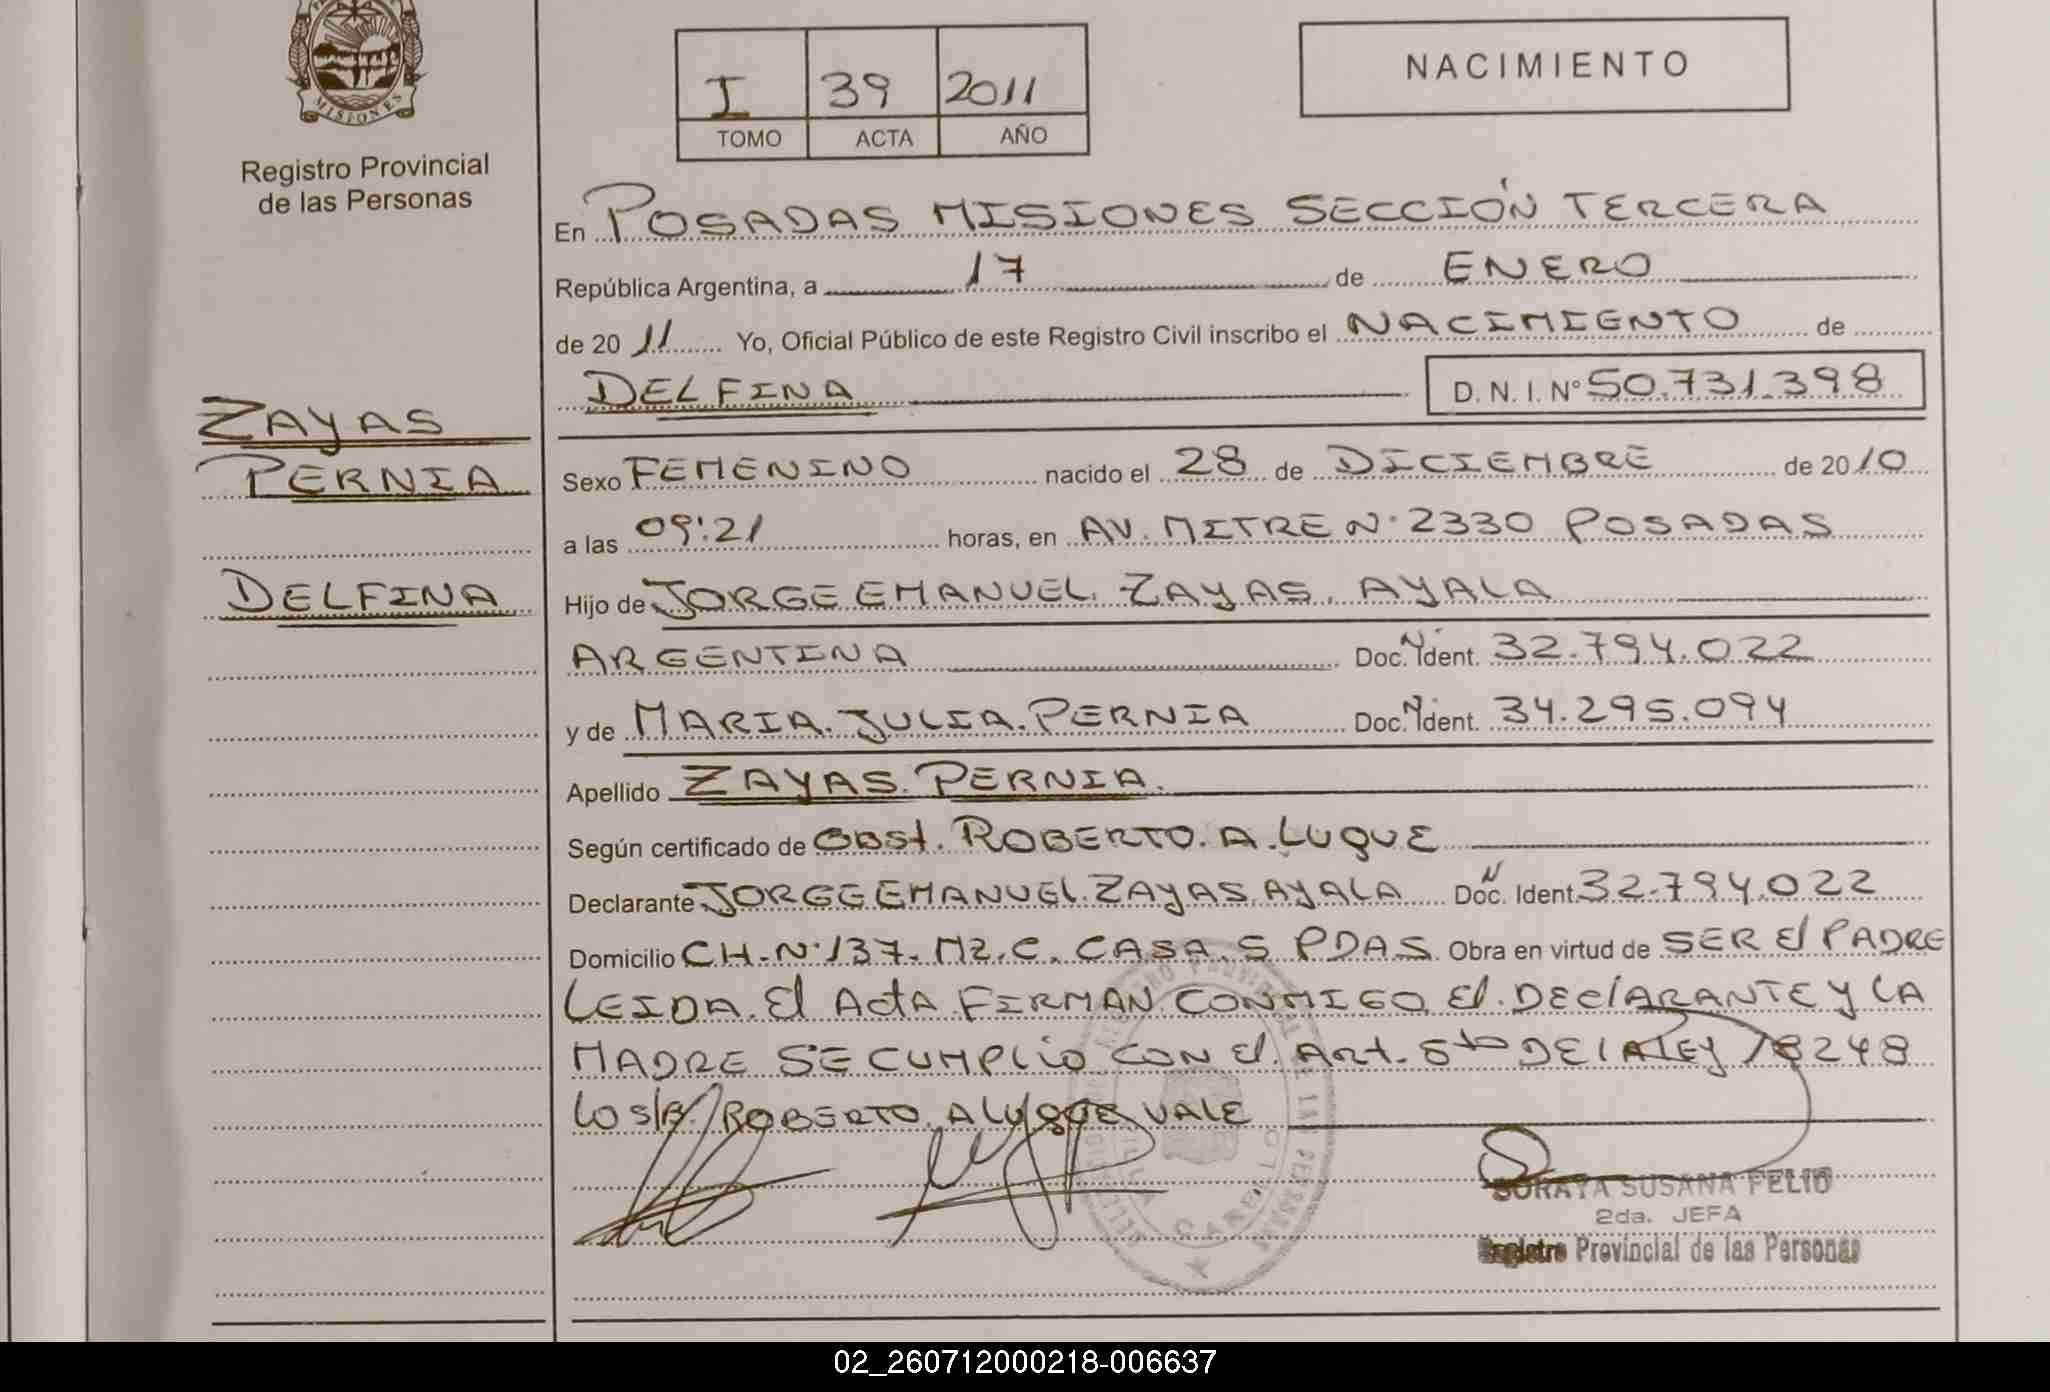 MISIONES
Registro Provincial
de las Personas
I 39 2011
TOMO ACTA AÑO
NACIMIENTO
En POSADAS MISIONES SECCIÓN TERCERA
República Argentina, a 17 de ENERO
de 20 11 Yo, Oficial Público de este Registro Civil inscribo el NACIMIENTO de
DELFINA D. N. I. Nº 50.731.398
ZAYAS
PERNIA
DELFINA
Sexo FEMENINO nacido el 28 de DICIEMBRE de 2010
a las 09:21 horas, en AV. MITRE N· 2330 POSADAS
Hijo de JORGE EMANUEL ZAYAS. AYALA
ARGENTINA Doc. N· Ident. 32.794.022
y de MARIA. JULIA. PERNIA Doc. N· Ident. 34.295.094
Apellido ZAYAS. PERNIA.
Según certificado de Obst. ROBERTO. A. LUQUE
Declarante JORGE EMANUEL. ZAYAS. AYALA Doc. N Ident. 32.794.022
Domicilio CH. N· 137. MZ. C. CASA. 5 PDAS. Obra en virtud de SER El PADRE
LEIDA. El ActA FIRMAN CONMIGO El. DEClARANTE Y LA
MADRE SE CUMPLIO CON El. Art. 5to DE lA LEY 18248
Lo s/B. ROBERTO. A LUQUE VALE
SORAYA SUSANA FELIU
2da. JEFA
Registro Provincial de las Personas
02_260712000218-006637